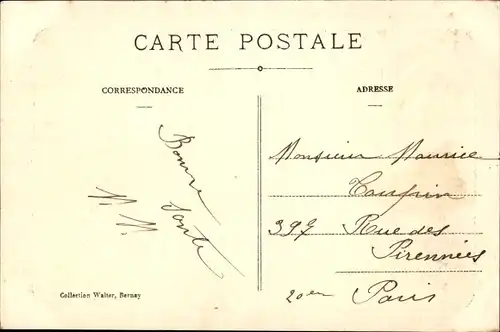 CARTE POSTALE
CORRESPONDANCE
ADRESSE
Bonne
Santé
Monsieur Maurice
397 Rue des
Pirennées
20em Paris
Collection Walter, Bernay